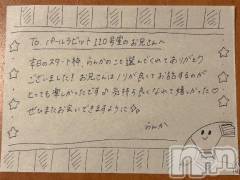 To. パールラビット 110号室のお兄さんへ
本日のスタート枠、らんかのこと選んでくれてありがとう
ございました! お兄さんノリが良くてお話するのが
とっても楽しかったです♪ 気持ち良くなれて嬉しかった♡
ぜひまたお会いできますように☆
らんか